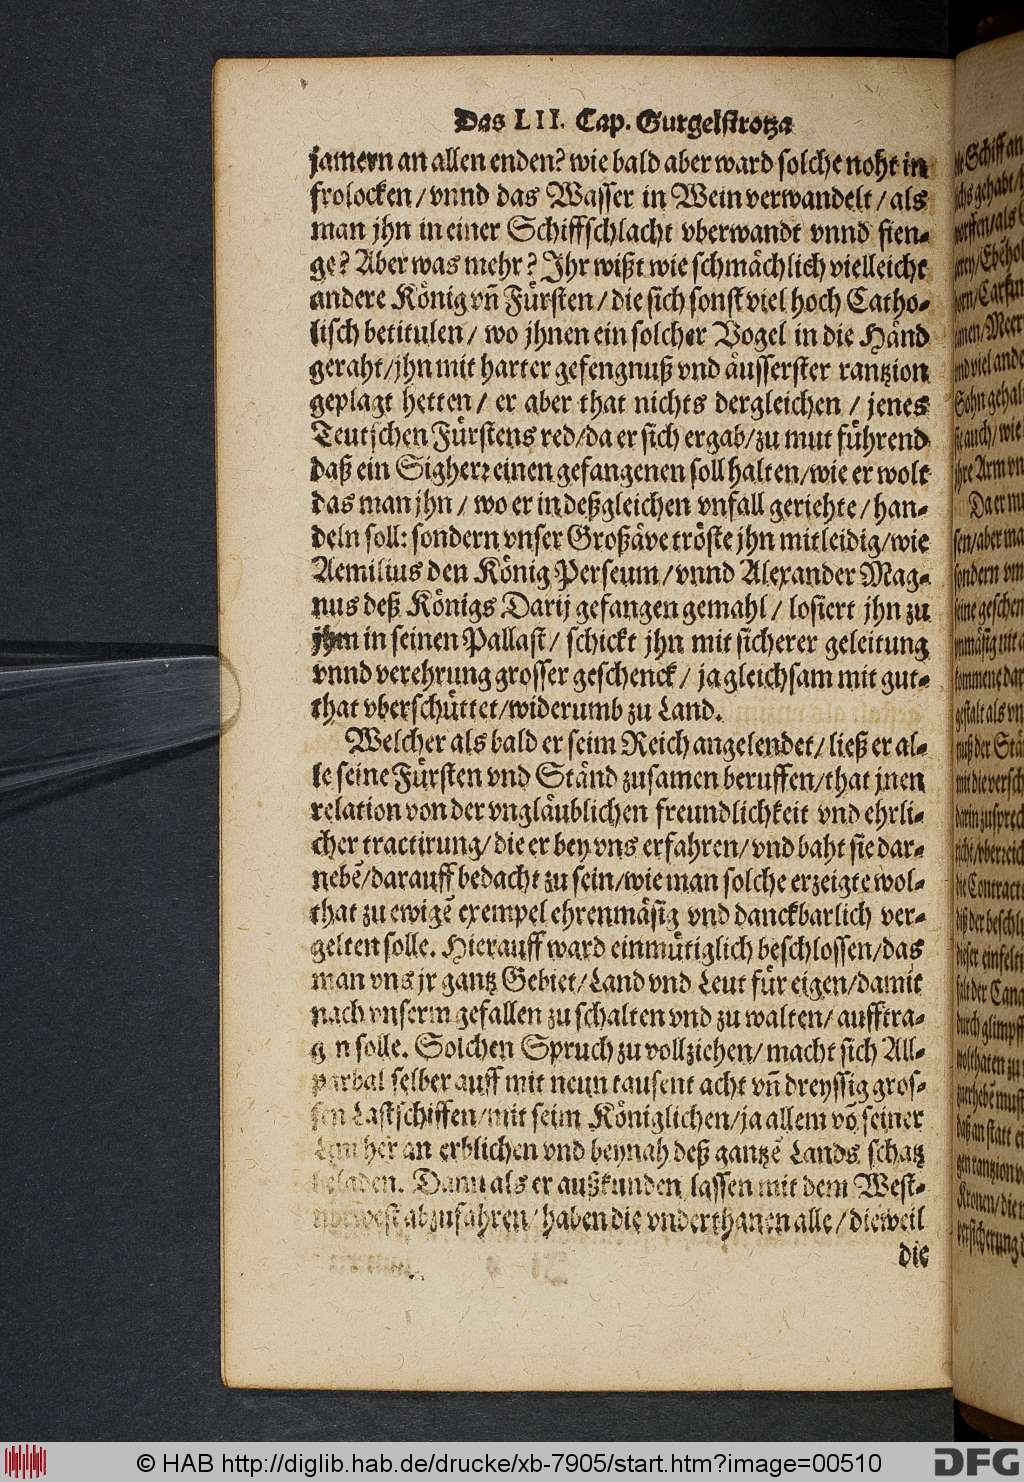 Das LII. Cap. Gurgelstrotza
jamern an allen enden? wie bald aber ward solche noht in
frolocken / vnnd das Wasser in Wein verwandelt / als
man jhn in einer Schiffschlacht vberwandt vnnd fien-
ge? Aber was mehr? Jhr wißt wie schmächlich vielleicht
andere König vñ Fürsten / die sich sonst viel hoch Catho-
lisch betitulen / wo jhnen ein solcher Vogel in die Händ
geraht / jhn mit harter gefengnuß vnd äusserster rantzion
geplagt hetten / er aber that nichts dergleichen / jenes
Teutschen Fürstens red / da er sich ergab / zu mut führend
daß ein Sigherr einen gefangenen soll halten / wie er wolt
das man jhn / wo er in deßgleichen vnfall geriehte / han-
deln soll: sondern vnser Großäve tröste jhn mitleidig / wie
Aemilius den König Perseum / vnnd Alexander Mag-
nus deß Königs Darij gefangen gemahl / losiert jhn zu
jhm in seinen Pallast / schickt jhn mit sicherer geleitung
vnnd verehrung grosser geschenck / ja gleichsam mit gut-
that vberschüttet / widerumb zu Land.
Welcher als bald er seim Reich angelendet / ließ er al-
le seine Fürsten vnd Ständ zusamen beruffen / that jnen
relation von der vngläublichen freundlichkeit vnd ehrli-
cher tractirung / die er bey vns erfahren / vnd baht sie dar-
nebẽ / darauff bedacht zu sein / wie man solche erzeigte wol-
that zu ewigẽ exempel ehrenmäsig vnd danckbarlich ver-
gelten solle. Hierauff ward einmütiglich beschlossen / das
man vns jr gantz Gebiet / Land vnd Leut für eigen / damit
nach vnserm gefallen zu schalten vnd zu walten / aufftra-
g n solle. Solchen Spruch zu vollziehen / macht sich All-
parbal selber auff mit neun tausent acht vñ dreyssig gros-
sen Lastschiffen / mit seim Königlichen / ja allem võ seiner
her an erblichen vnd beynah deß gantzẽ Lands schatz
beladen. Dann als er außkunden lassen mit dem West-
nortwest abzufahren / haben die vnderthanen alle / dieweil
die
© HAB http://diglib.hab.de/drucke/xb-7905/start.htm?image=00510
DFG